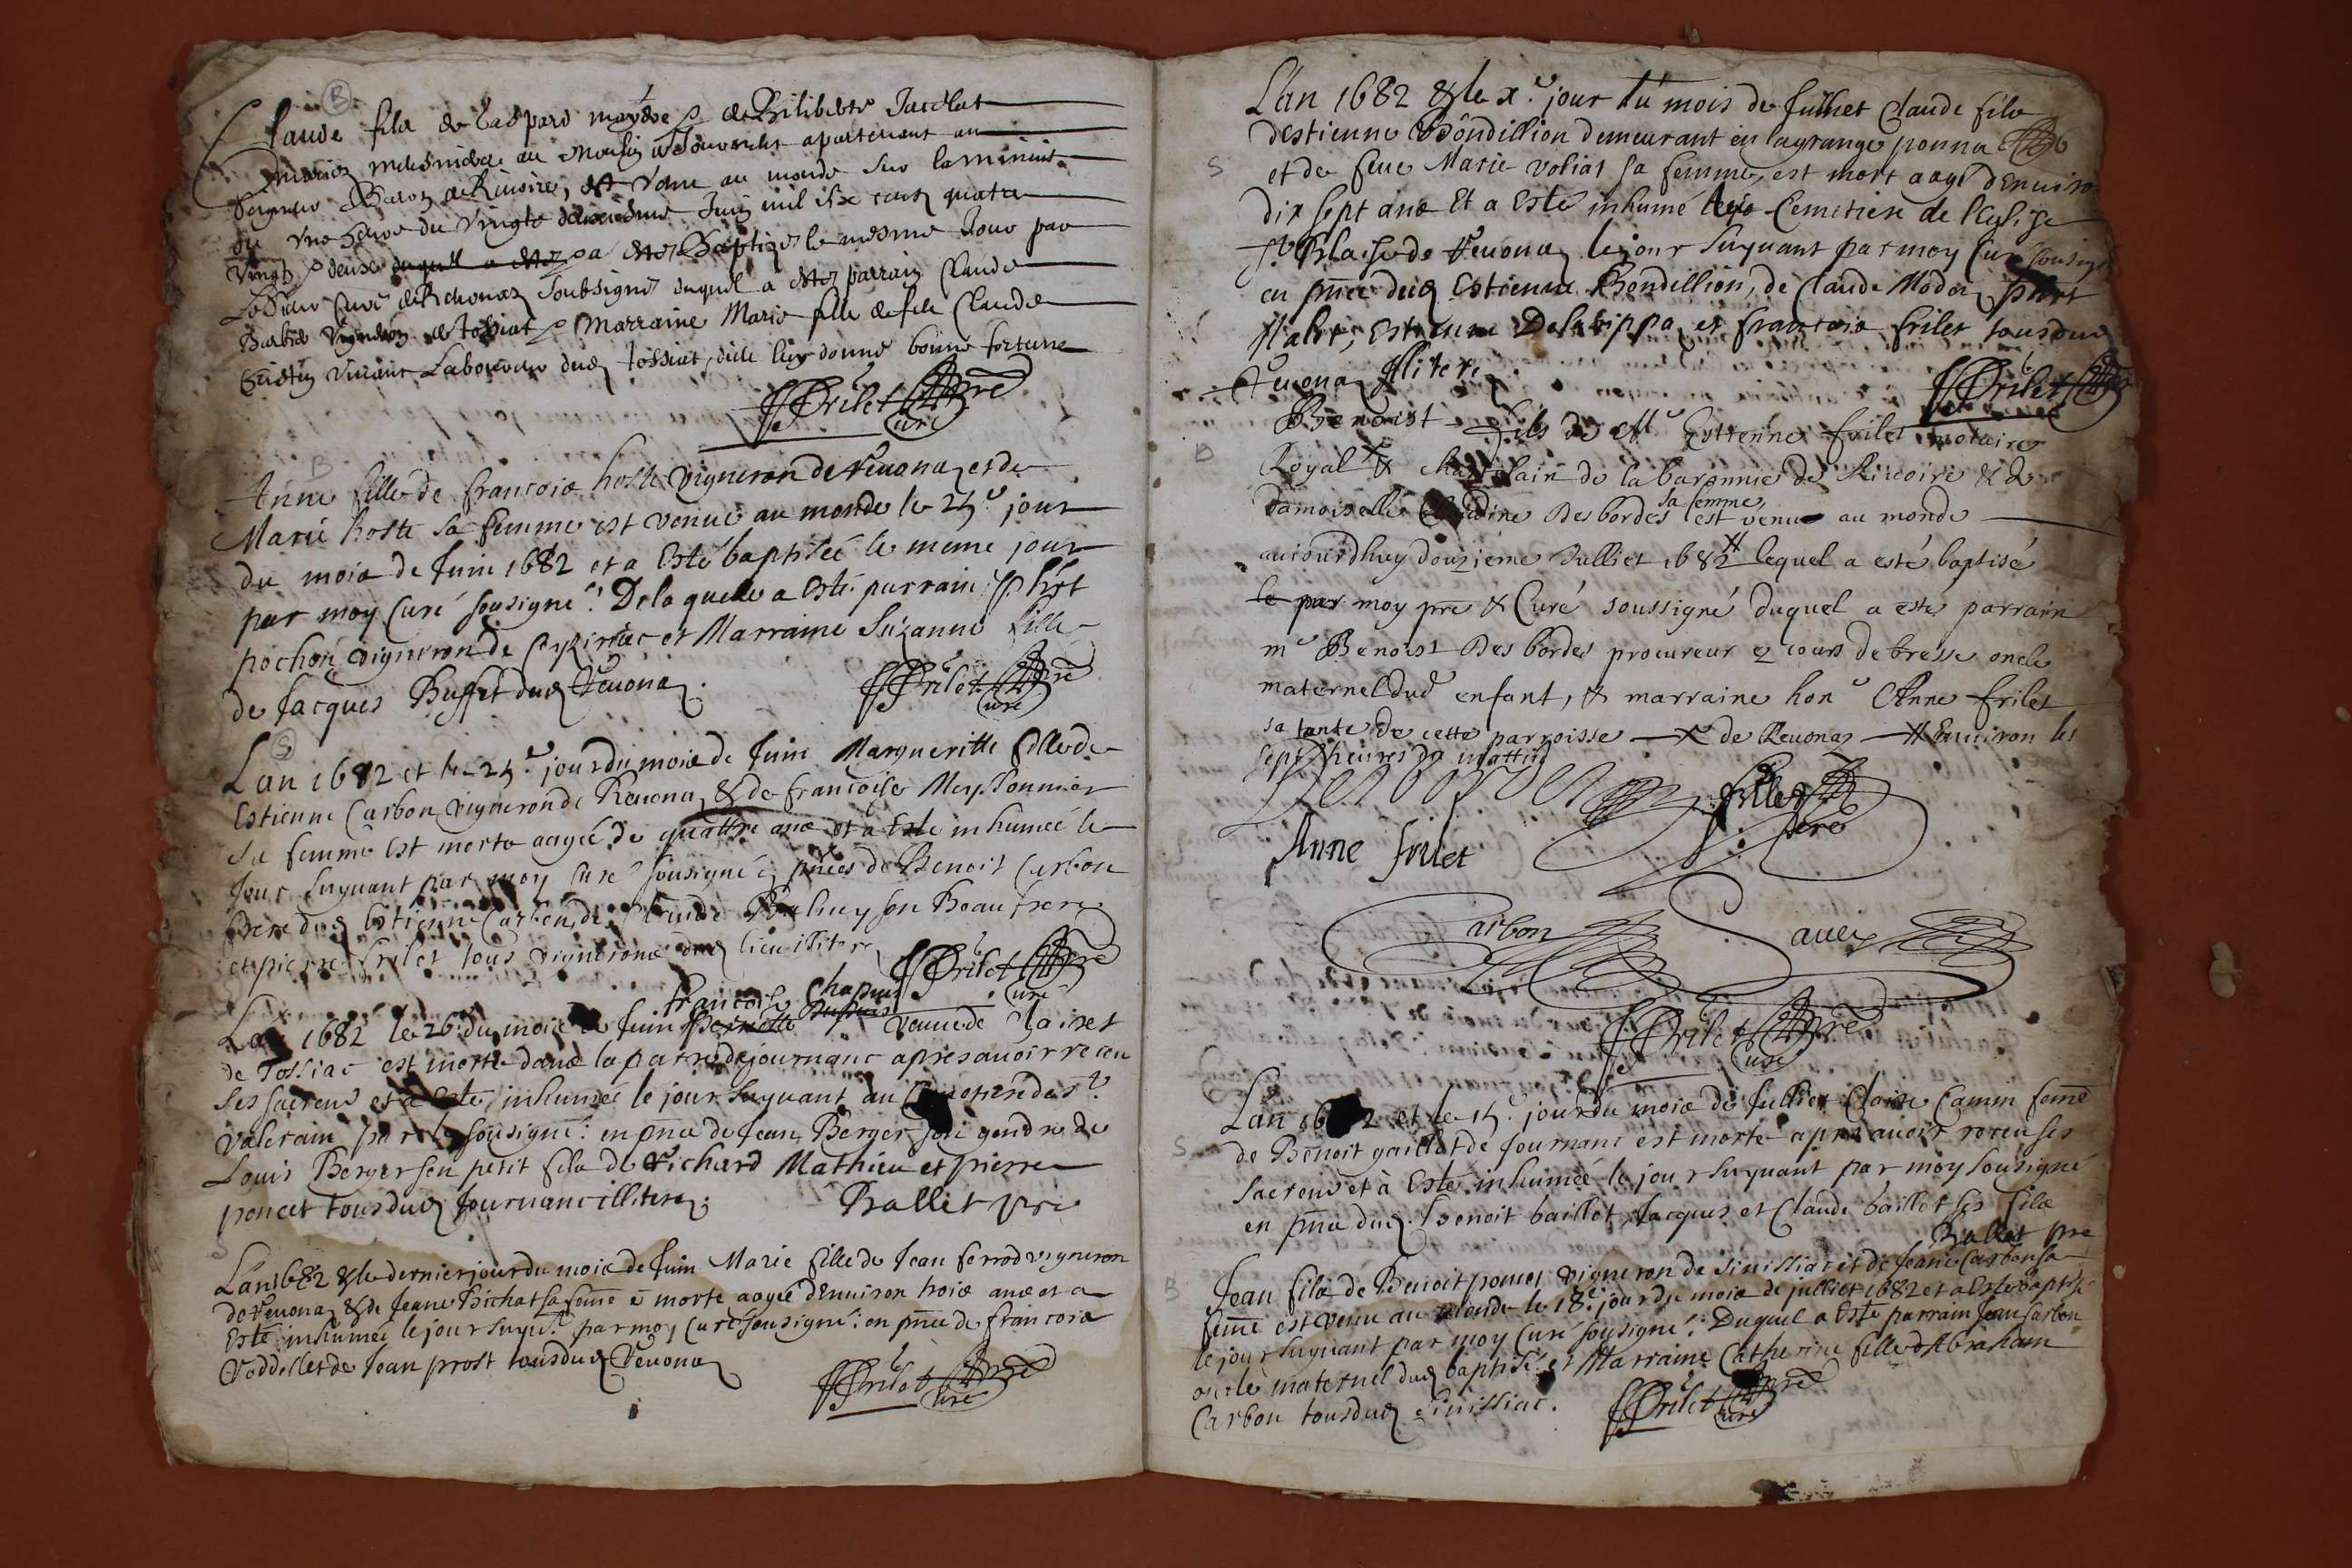 B
Claude fils de Gaspard & de Philiberte Jacelat
mariez au Moulin de apartenant au
Seigneur Baron de Riuoire, est venu au monde sur la minuit
ou vne heure du vingte deuxiesme Juin mil six cent quatre
vingt & deux a estez Baptizé le mesme Jour par
le Sieur Curé de Reuonaz soubsigné duquel a estez parrain Claude
vigneron de Tossiat & Marraine Marie fille de feu Claude
viuant Laboureur dud Tossiat, dieu luy donne bonne fortune
Frilet pre
Curé
B
Anne fille de francois hoste vigneron de Reuona et de
Marie hoste sa femme est venue au monde le 25e jour
du mois de Juin 1682 et a Esté baptiseé le meme jour
par moy Curé sousigné. De la quelle a Esté parrain Phbt
pochon vigneron de et Marraine Suzanne fille
de Jacques Buffet dud Reuona.
Frilet pre
Curé
S
Lan 1682 et le 25e jour du mois de Juin Margueritte fille de
Estienne Carbon vigneron de Reuona & de francoise Mey Ponnier
sa femme est morte aageé de quattre ans et a Este inhumeé le
Jour suyuant par moy Curé sousigné en pnces de Benoit Carbon
frere dud Estienne Carbon, de Claude son Beau frere
et pierre frilet tous vignerons dud lieu illitere
Frilet pre
Curé
francoise Chapuis
Lan 1682 le 26e du mois de Juin pernette veuue de Clairet
de Tossiac est morte dans la parre de journanc apres auoir receu
ses sacrens et a Esté inhumeé le jour suyuant au Cemetiere de St
Valerain par le sousigné: en pnce de Jean Berger son gendre de
Louis Berger son petit fils de Richard Mathieu et pierre
poncet tous dud Journanc illitere.
Ballet pre
Lan 1682 & le dernier jour du mois de Juin Marie fille de Jean ferrod vigneron
de Reuona & de Jeane Bichat sa feme e morte aageé denuiron trois ans et a
Esté inhumeé le jour suyut par moy Curé sousigné: en pnce de francois
Voddillet de Jean prost tous dud Reuona
Frilet pre
Curé
S
Lan 1682 & le xe jour du mois de Julliet Claude fils
destienne Bondillion demeurant en lagrange ponna
et de feue Marie voliat sa femme, est mort aagé denuiron
dix sept ans Et a Esté inhumé Cemetiere de lEglise
St Blaise de Reuona le jour suyuant par moy Curé sousigné
en pnce dud Estienne Bondillion, de Claude Moda phbt
Malet, Estienne et francois frilet tous dud
Reuona Illitere.
Frilet pre
B
Benoist fils de Mr Estienne frilet notaire
Royal & chastelain de la baronnie de Riuoire & de
sa femme,
damoiselle Claudine Desbordes est venu au monde
auiourdhuy douzieme Julliet 1682 lequel a esté baptisé
le par moy pre & Curé soussigné duquel a esté parrain
mr Benoist Desbordes procureur ez cours de bresse oncle
maternel dud enfant, & marraine hon Anne frilet
sa tante de cette parroisse de Reuonaz Enuiron les
sept heures du mattin
Desbordes
frilet
pere
Anne frilet
Carbon
Sauey
Frilet pre
Curé
S
Lan 1682 et le 15e jour du mois de Julliet Claire Camin feme
de Benoit gaillot de Journanc est morte apres auoir receu ses
sacrens et à Esté inhumeé le jour suyuant par moy sousigné
en pnce dud Benoit baillot, Jacques et Claude baillot ses fils
Ballet pre
B
Jean fils de Benoit poncet vigneron de Siuilliac et de Jeane Carbon sa
feme est venu au Monde le 18e jour du mois de julliet 1682 et a Esté baptisé
le jour suyuant par moy Curé sousigné. Duquel a Esté parrain Jean Carbon
oncle maternel dud baptisé et Marraine Catherine fille dAbraham
Carbon tous dud Siuilliac.
Frilet pre
Curé